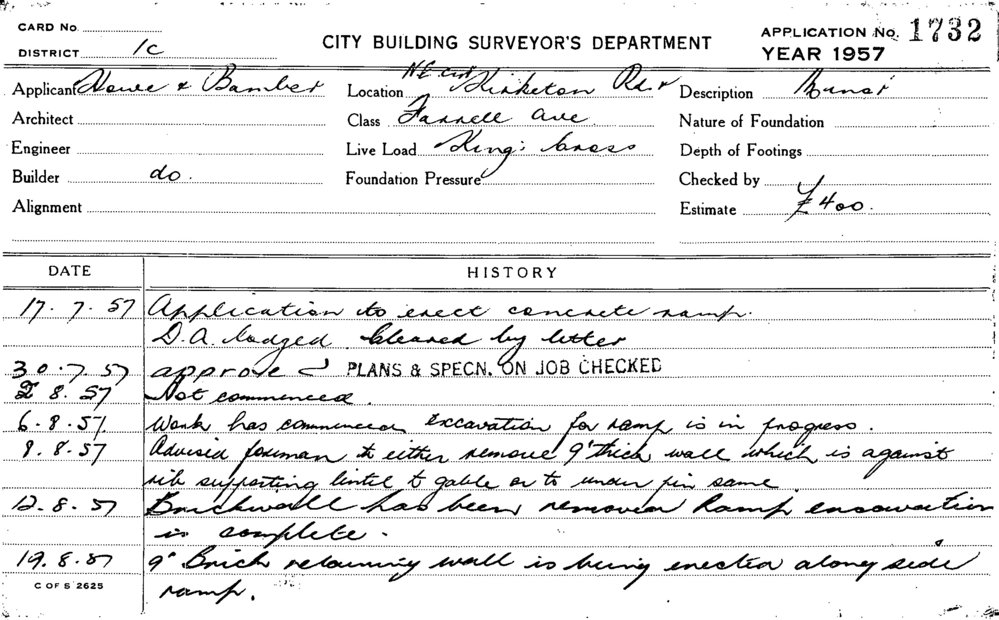 CARD No.
DISTRICT 1c
CITY BUILDING SURVEYOR'S DEPARTMENT
APPLICATION No. 1732
YEAR 1957
Applicant Howe & Bamber
Location N E Cnr Kirketon Rd &
Description
Architect
Class Farrell Ave
Nature of Foundation
Engineer
Live Load King's Cross
Depth of Footings
Builder do.
Foundation Pressure
Checked by
Alignment
Estimate £400.
DATE HISTORY
17.7.57 Application to erect concrete ramp.
D.A. lodged. Cleared by letter
30.7.57 approve PLANS & SPECN. ON JOB CHECKED
2 8.57 Not commenced.
6.8.57 Work has commenced excavation for ramp is in progress.
9.8.57 Advised foreman to either remove 9" thick wall which is against
rib supporting lintel to gable or to under pin same.
12.8.57 Brickwall has been removed Ramp excavation
is complete.
19.8.57 9" Brick retaining wall is being erected along side
ramp.
C OF S 2625